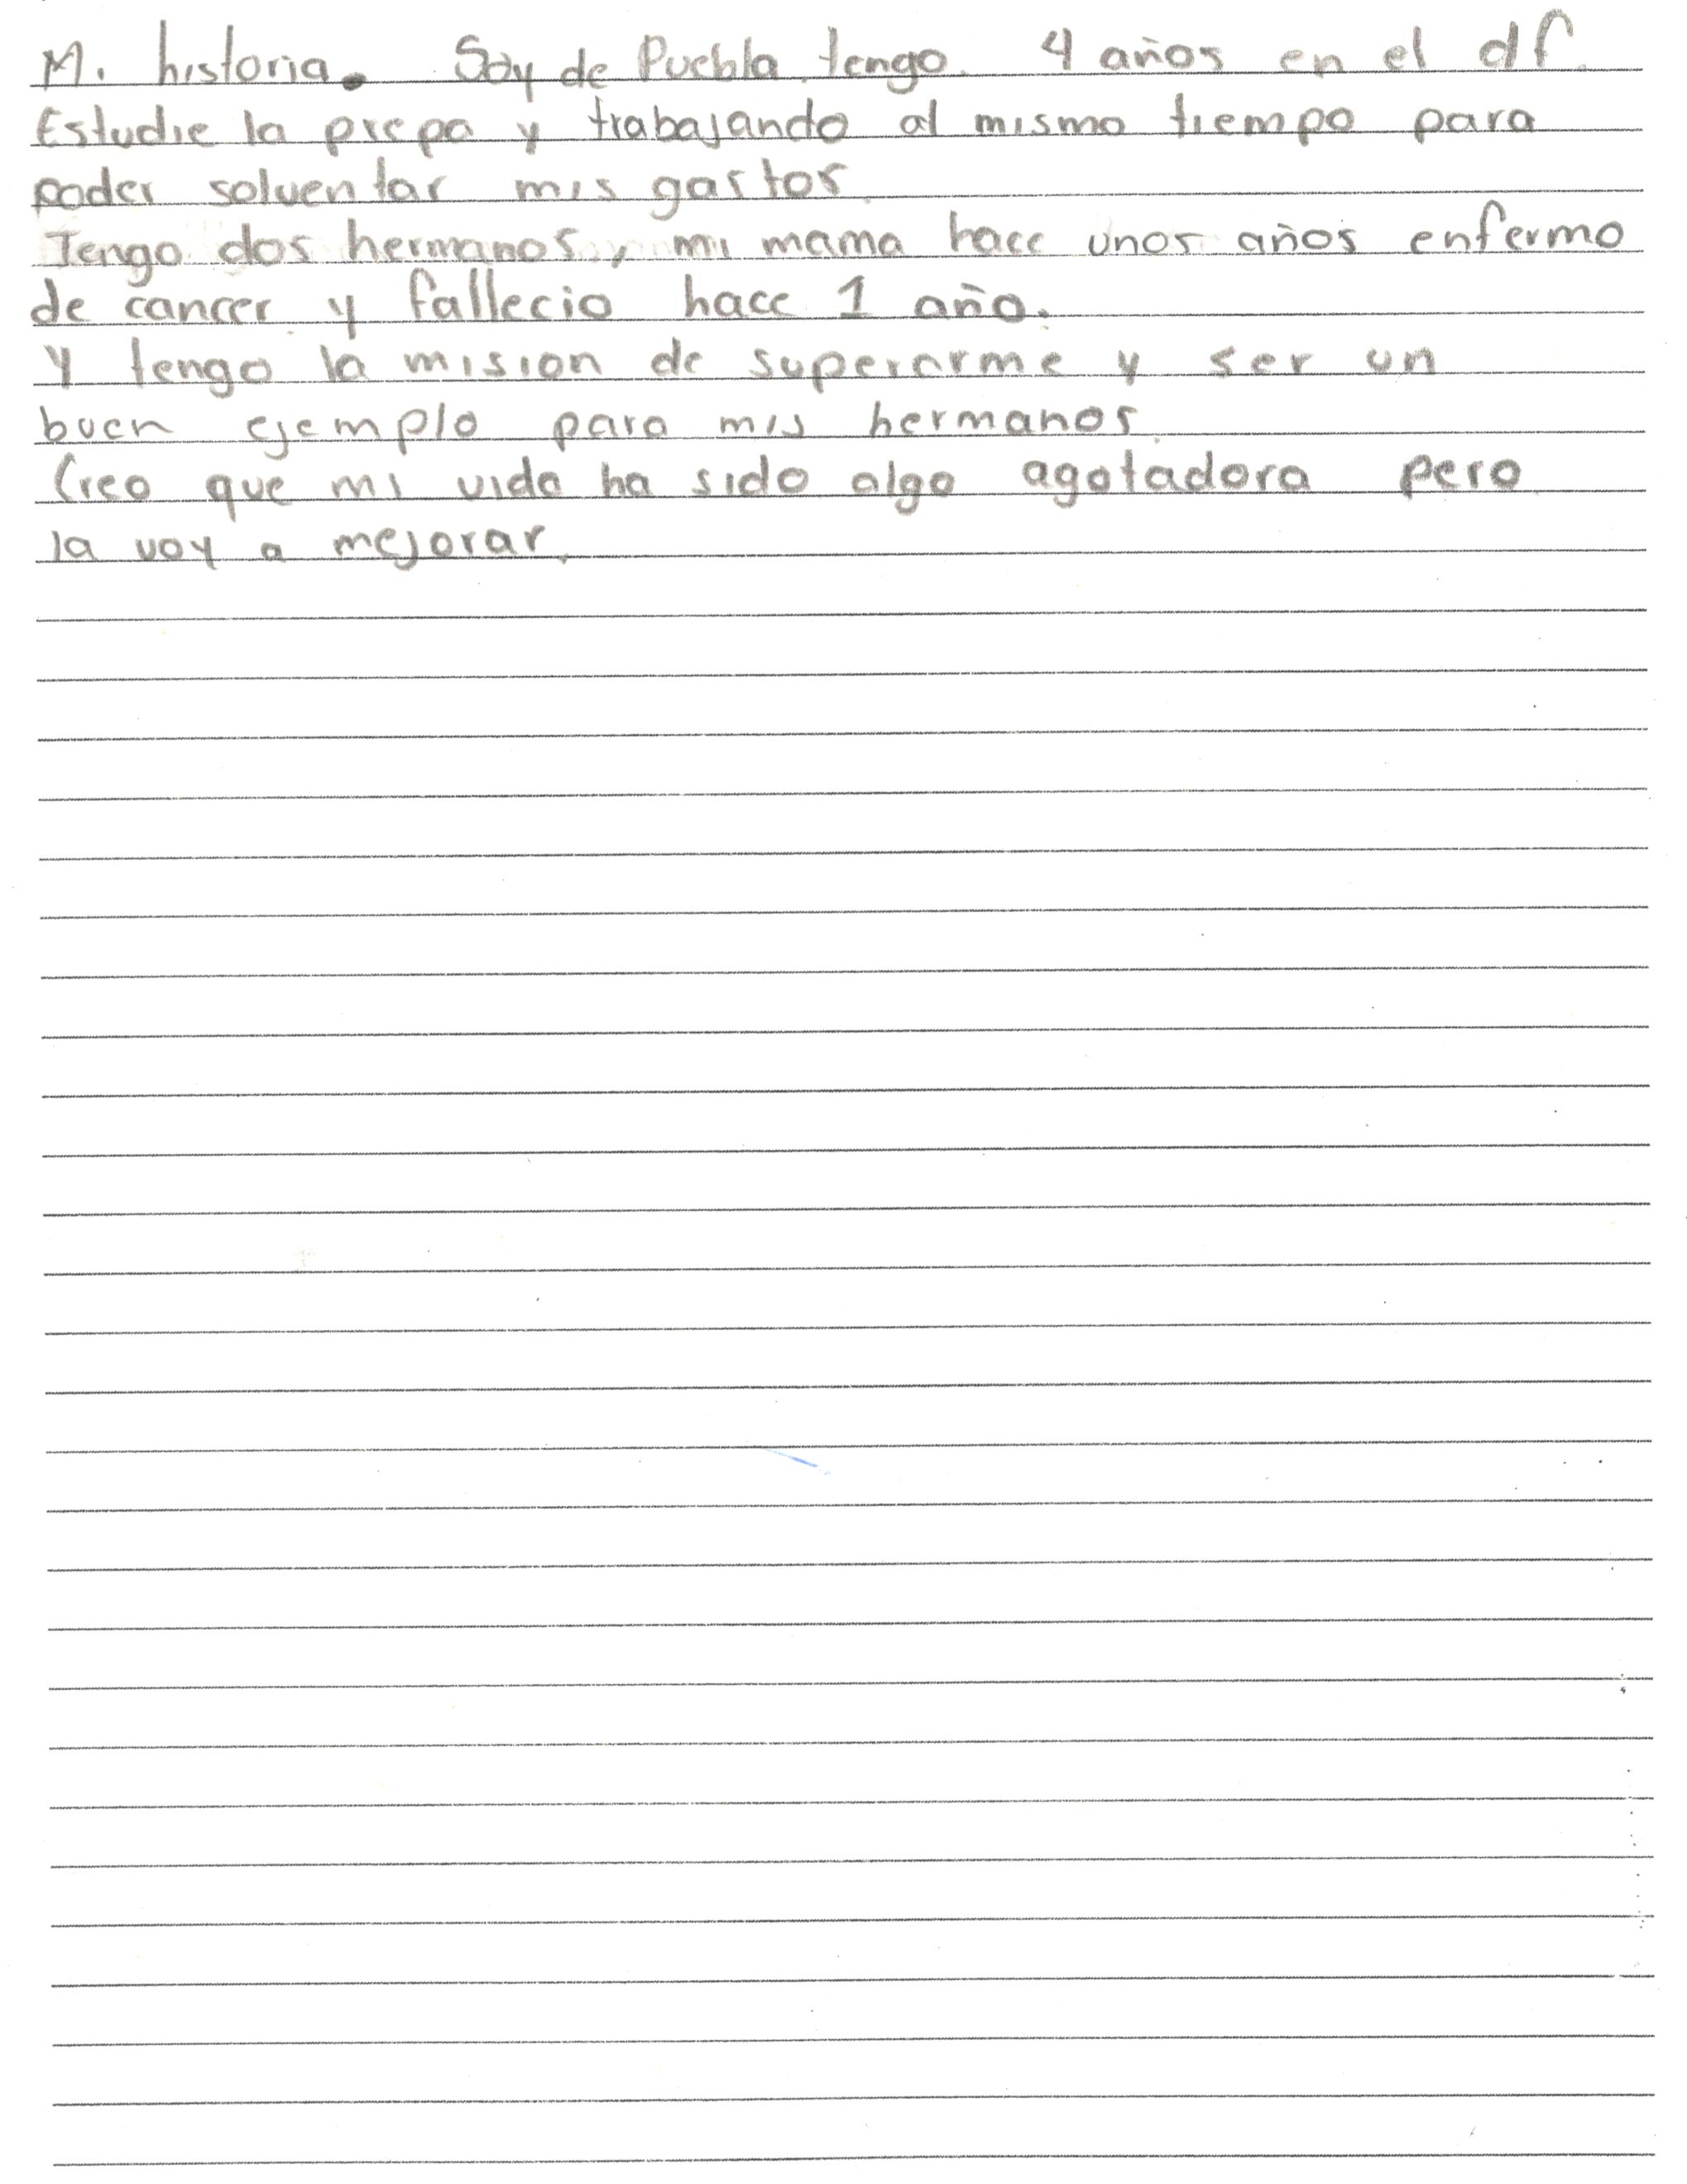 Mi historia. Soy de Puebla tengo 4 años en el df.
Estudie la prepa y trabajando al mismo tiempo para
poder solventar mis gastos.
Tengo dos hermanos, mi mama hace unos años enfermo
de cancer y fallecio hace 1 año.
Y tengo la mision de superarme y ser un
buen ejemplo para mis hermanos.
Creo que mi vida ha sido algo agotadora pero
la voy a mejorar.